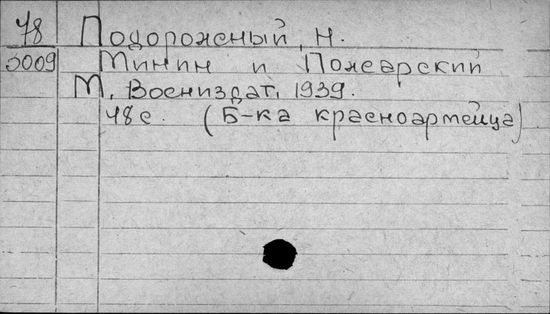 48 Подорожный, Н.
3009 Минин и Пожарский
М, Воениздат, 1939.
48 с. (Б-ка красноармейца)